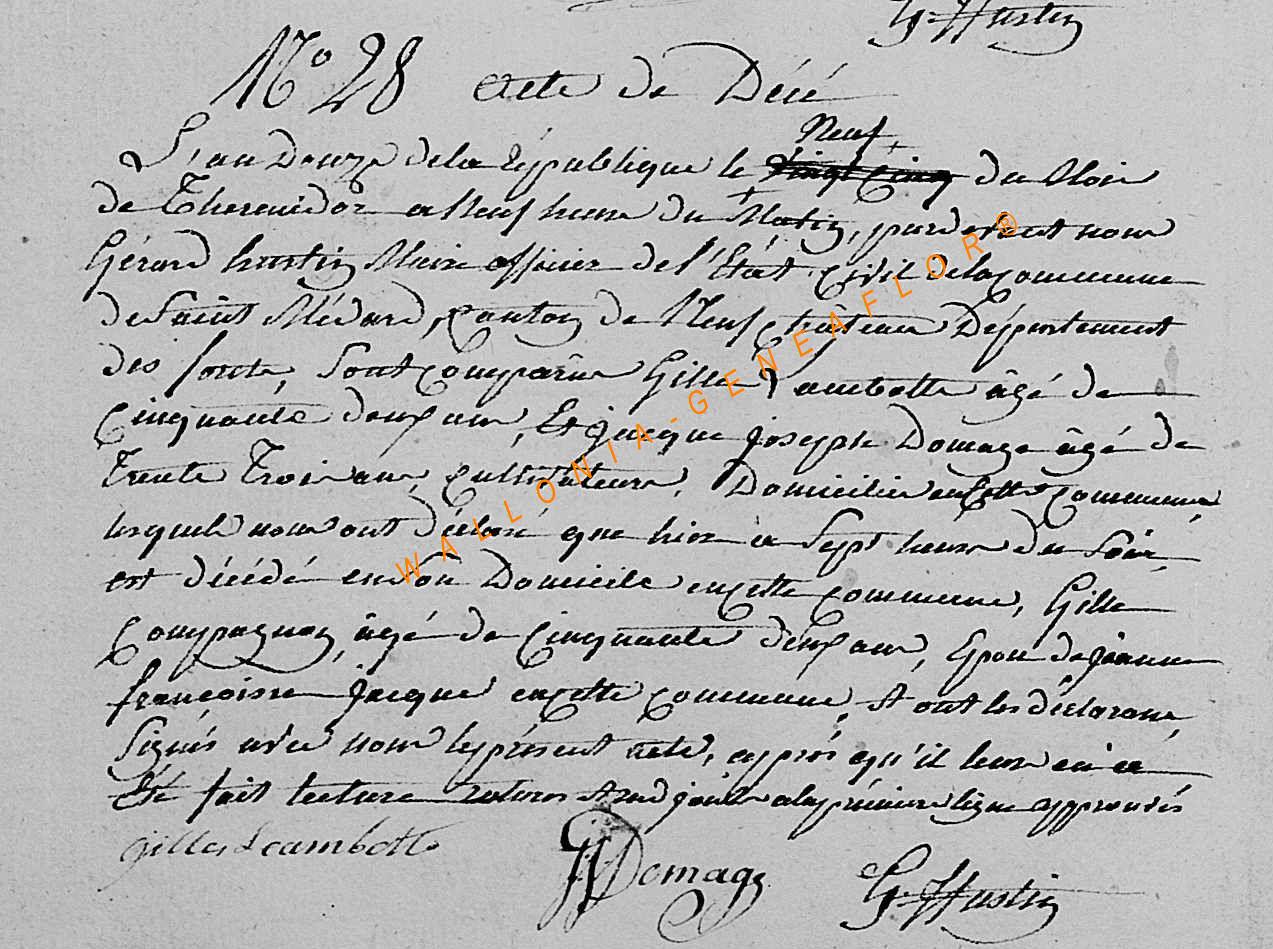 G. Hustin
N.° 28 acte de Décé
Neuf
L'an Douze de la République le vingt cinq du Mois
de Thermidor a Neuf heure du Matin, pardevant nous
Gérard hustin Maire officier de l'Etât Civil de la Commune
de Saint Médard, Canton de Neufchateau Département
des forêts, Sont Comparus Gille Lambotte âgé de
Cinquante deux ans, Et jacque joseph Domage âgé de
Trente Trois ans, Cultivateurs, Domicilié en cette Commune
lesquels nous ont déclaré que hier à Sept heure du Soir,
est décédé en son Domicile en cette commune, Gille
Compagnon, âgé de Cinquante deux ans, Epou de jeanne
françoisse jacque en cette commune, et ont les déclarans
Signés avec nous le présent acte, après qu'il leur en a
Eté fait lecture et à la première ligne approuvés
gilles Lambotte JJ Domage G. Hustin
WALLONIA-GENEAFLOR®